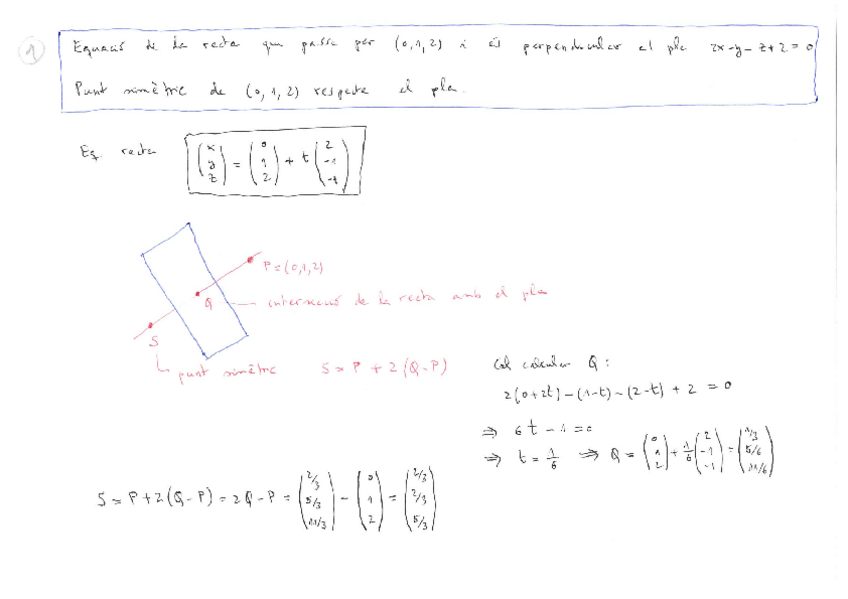 1
Equació de la recta que passa per (0,1,2) i és perpendicular al pla 2x-y-z+2=0
Punt simètric de (0,1,2) respecte el pla.
Eq. recta (x y z) = (0 1 2) + t (2 -1 -1)
P=(0,1,2)
Q — intersecció de la recta amb el pla
S
punt simètric S = P + 2(Q-P)
Cal calcular Q:
2(0+2t)-(1-t)-(2-t)+2 = 0
⇒ 6t-1=0
⇒ t = 1/6 ⇒ Q = (0 1 2) + 1/6 (2 -1 -1) = (1/3 5/6 11/6)
S = P+2(Q-P) = 2Q-P = (2/3 5/3 11/3) - (0 1 2) = (2/3 2/3 5/3)